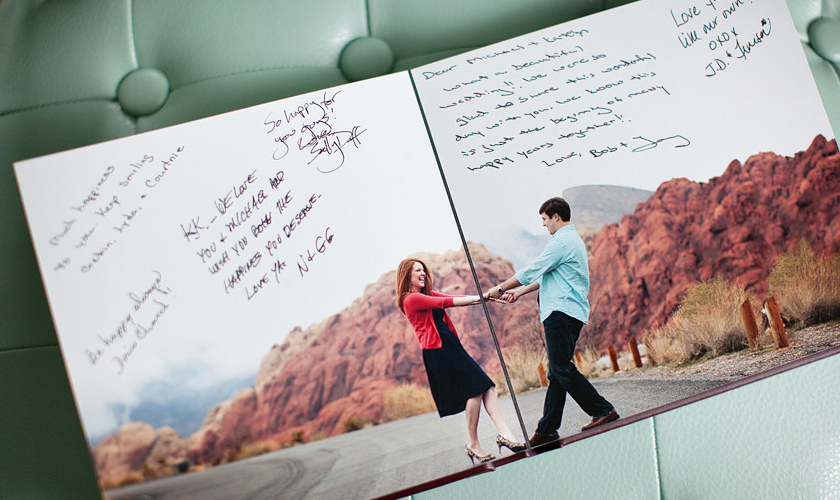 Much happiness
to you. Keep smiles
Courtnie
Be happy always
So happy for
you guys!!
KK - WE LOVE
YOU + MICHAEL AND
WISH YOU BOTH THE
HAPPINESS YOU DESERVE.
LOVE YA,
N + GG
Dear Michael +
What a beautiful
wedding!! We were so
glad to share this wonderful
day with you. We know this
is just the begining of many
happy years together!!
Love, Bob +
Love
like our own!
OXOX
J.D. +